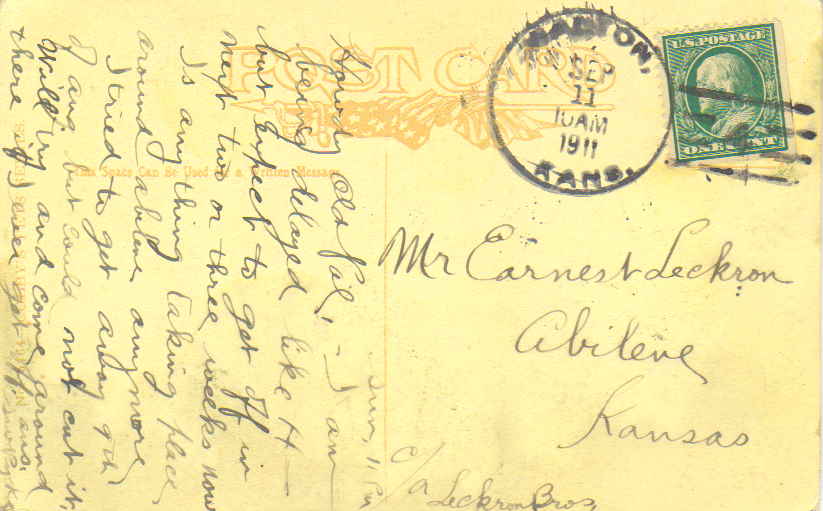 POST CARD
This Space Can Be Used for a Written Message
CANTON,
SEP
11
10AM
1911
KANS.
U.S. POSTAGE
ONE CENT
Sun, 11 P.M.
Howdy Old Pal, - I am
being delayed like H—
but Expect to get off in
next two or three weeks now
Is any thing taking place
around abilene anymore
I tried to get away 9th
of aug but could not cut it,
Will try and come around
there if I ever get off. ans.
Mr Earnest Leckron
Abilene,
Kansas
c/o Leckron Bros,